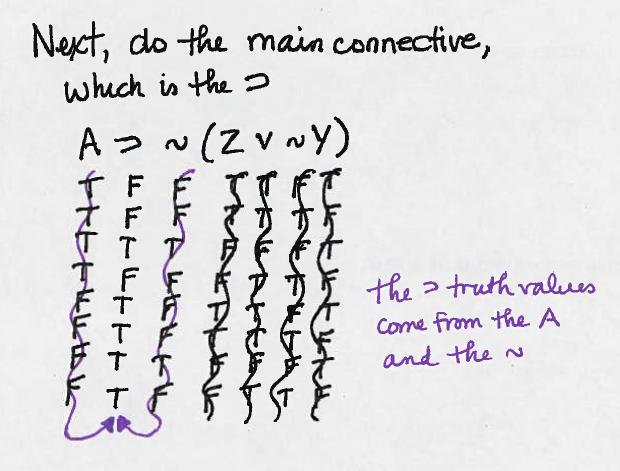 Next, do the main connective,
which is the ⊃
A ⊃ ~ (Z v ~ Y)
T F F T T F T
T F F T T T F
T T T F F F T
T F F F T T F
F T F T T F T
F T F T T T F
F T T F F F T
F T F F T T F
the ⊃ truth values
come from the A
and the ~